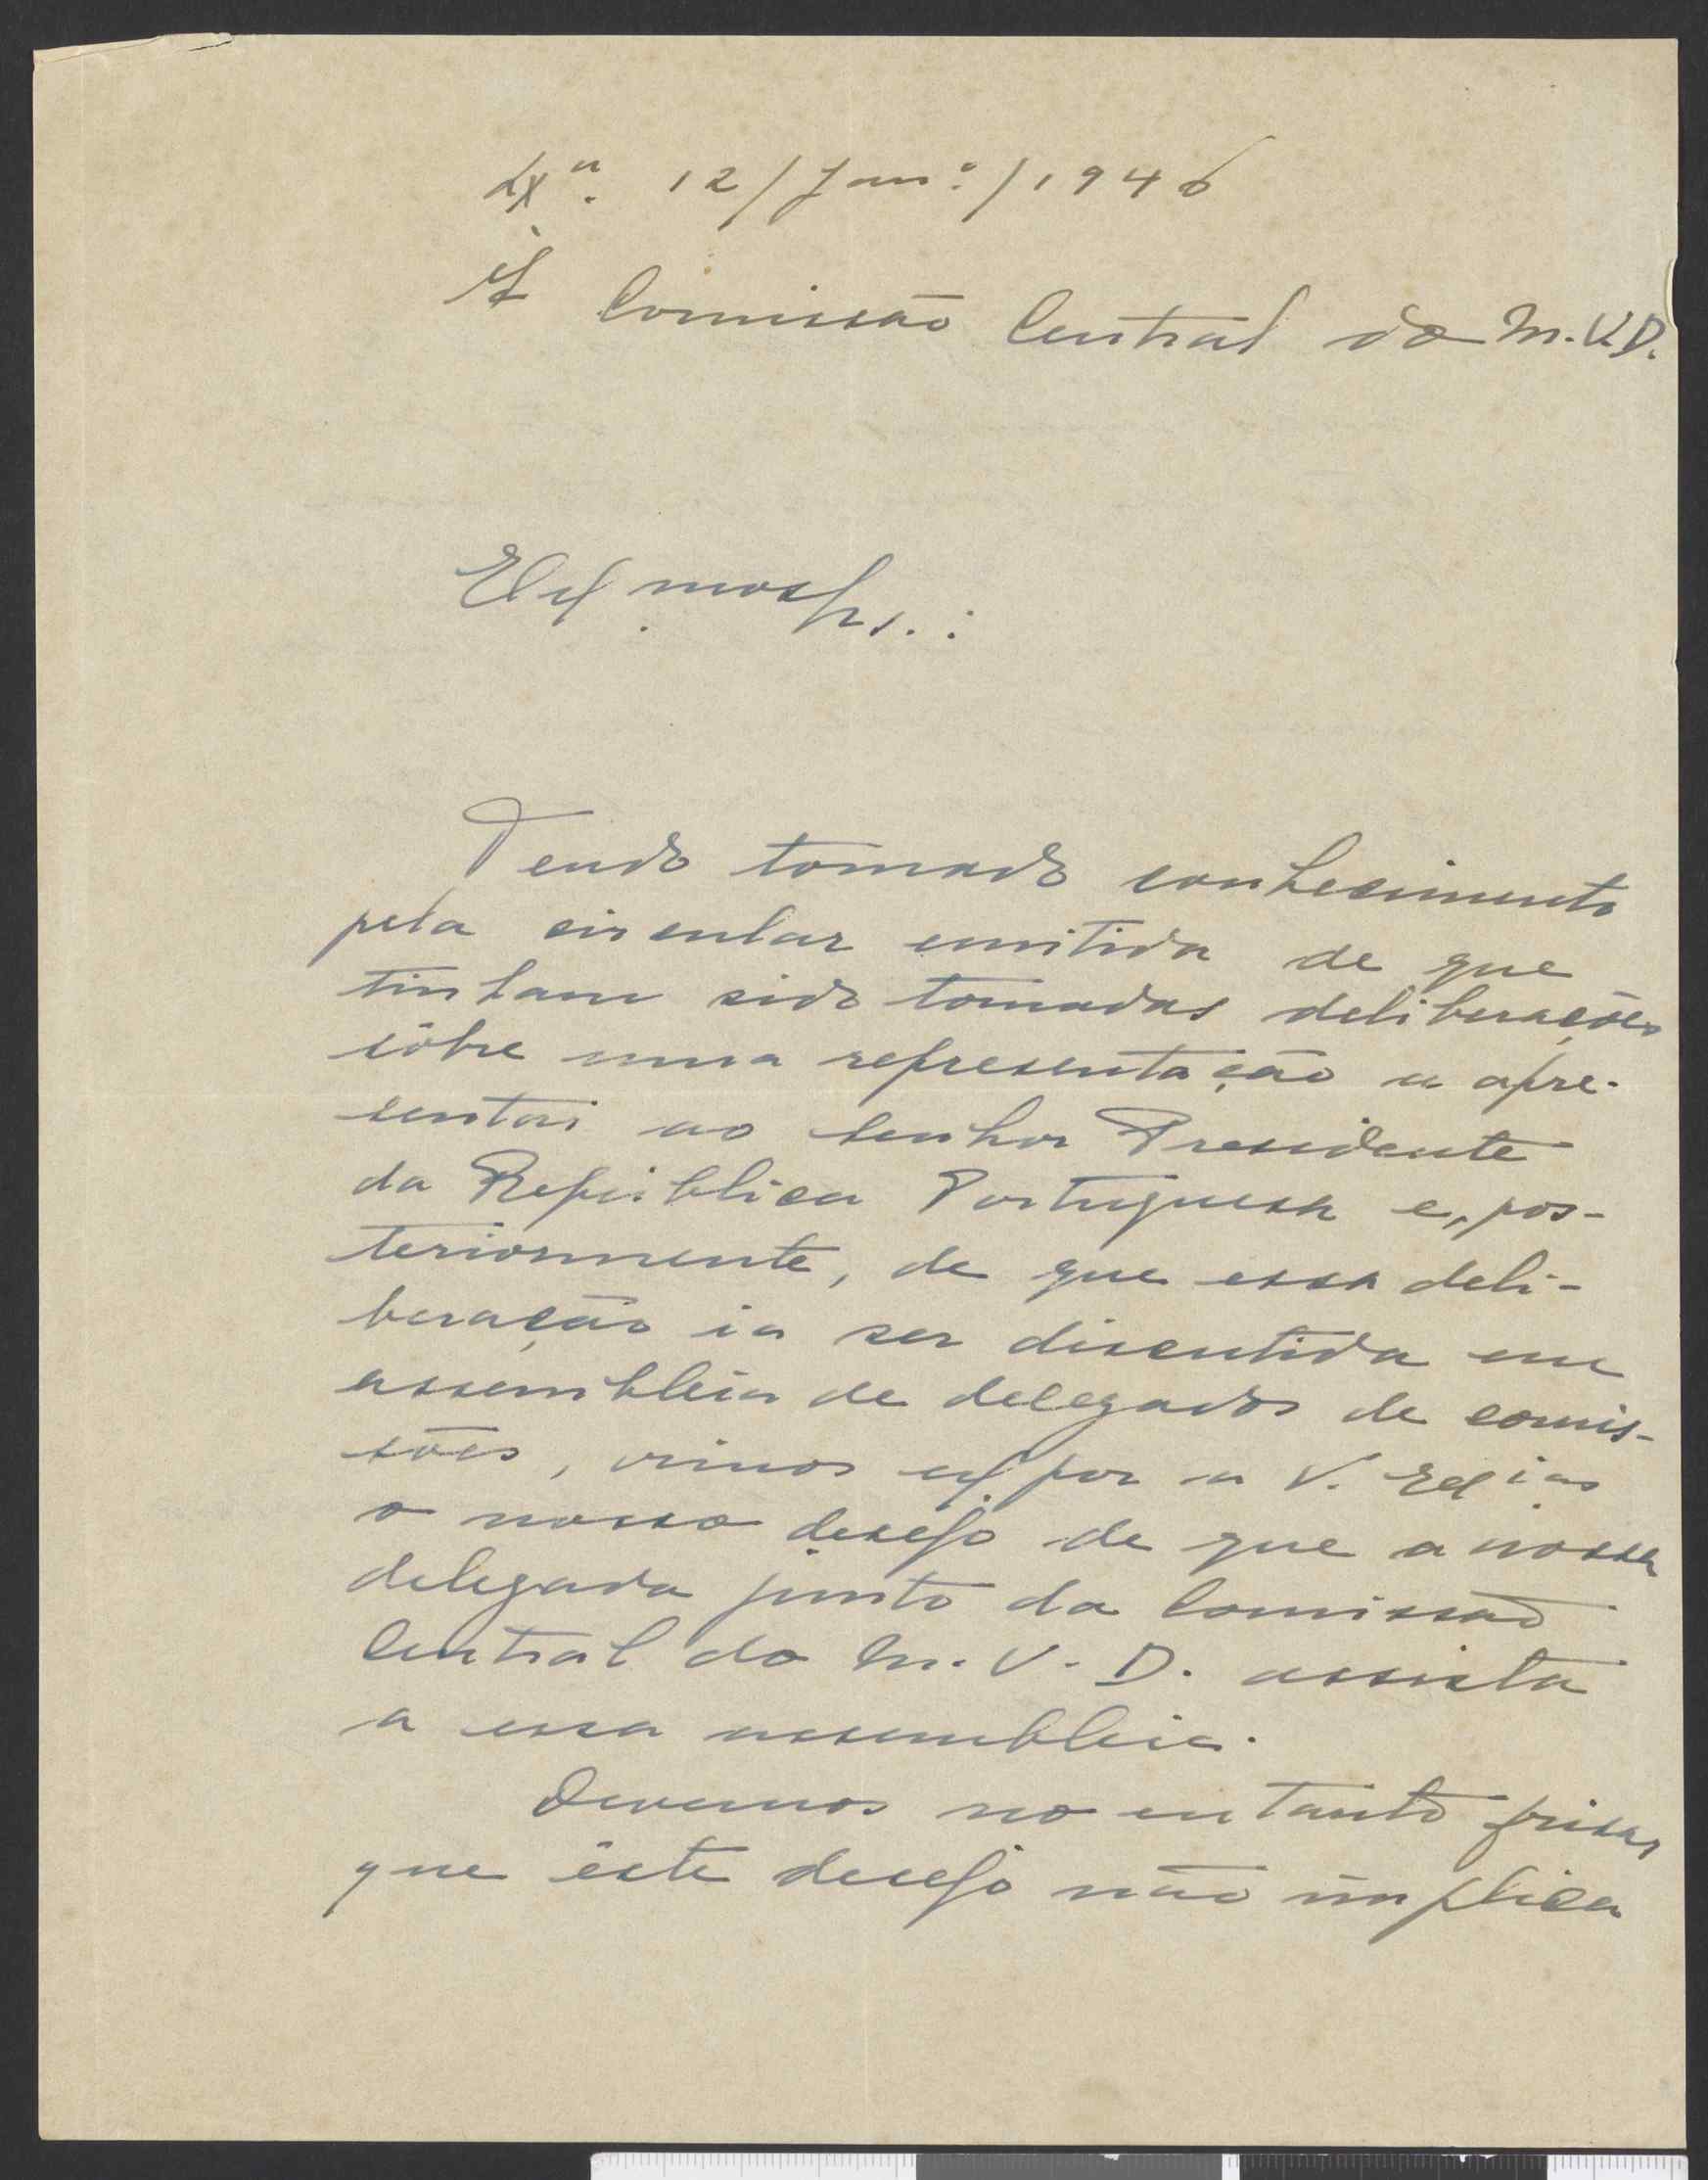 Lxª. 12/Janº/1946
À Comissão Central do M.U.D.
Exmos Srs.:
Tendo tomado conhecimento
pela circular emitida de que
tinham sido tomadas deliberações
sôbre uma representação a apre-
sentar ao Senhor Presidente
da República Portuguesa e, pos-
teriormente, de que essa deli-
beração ia ser discutida em
assembleia de delegados de comis-
sões, vimos expor a V. Exias
o nosso desejo de que a nossa
delegada junto da Comissão
Central do M. U. D. assista
a essa assembleia.
Devemos no entanto frisar
que êste desejo não implica